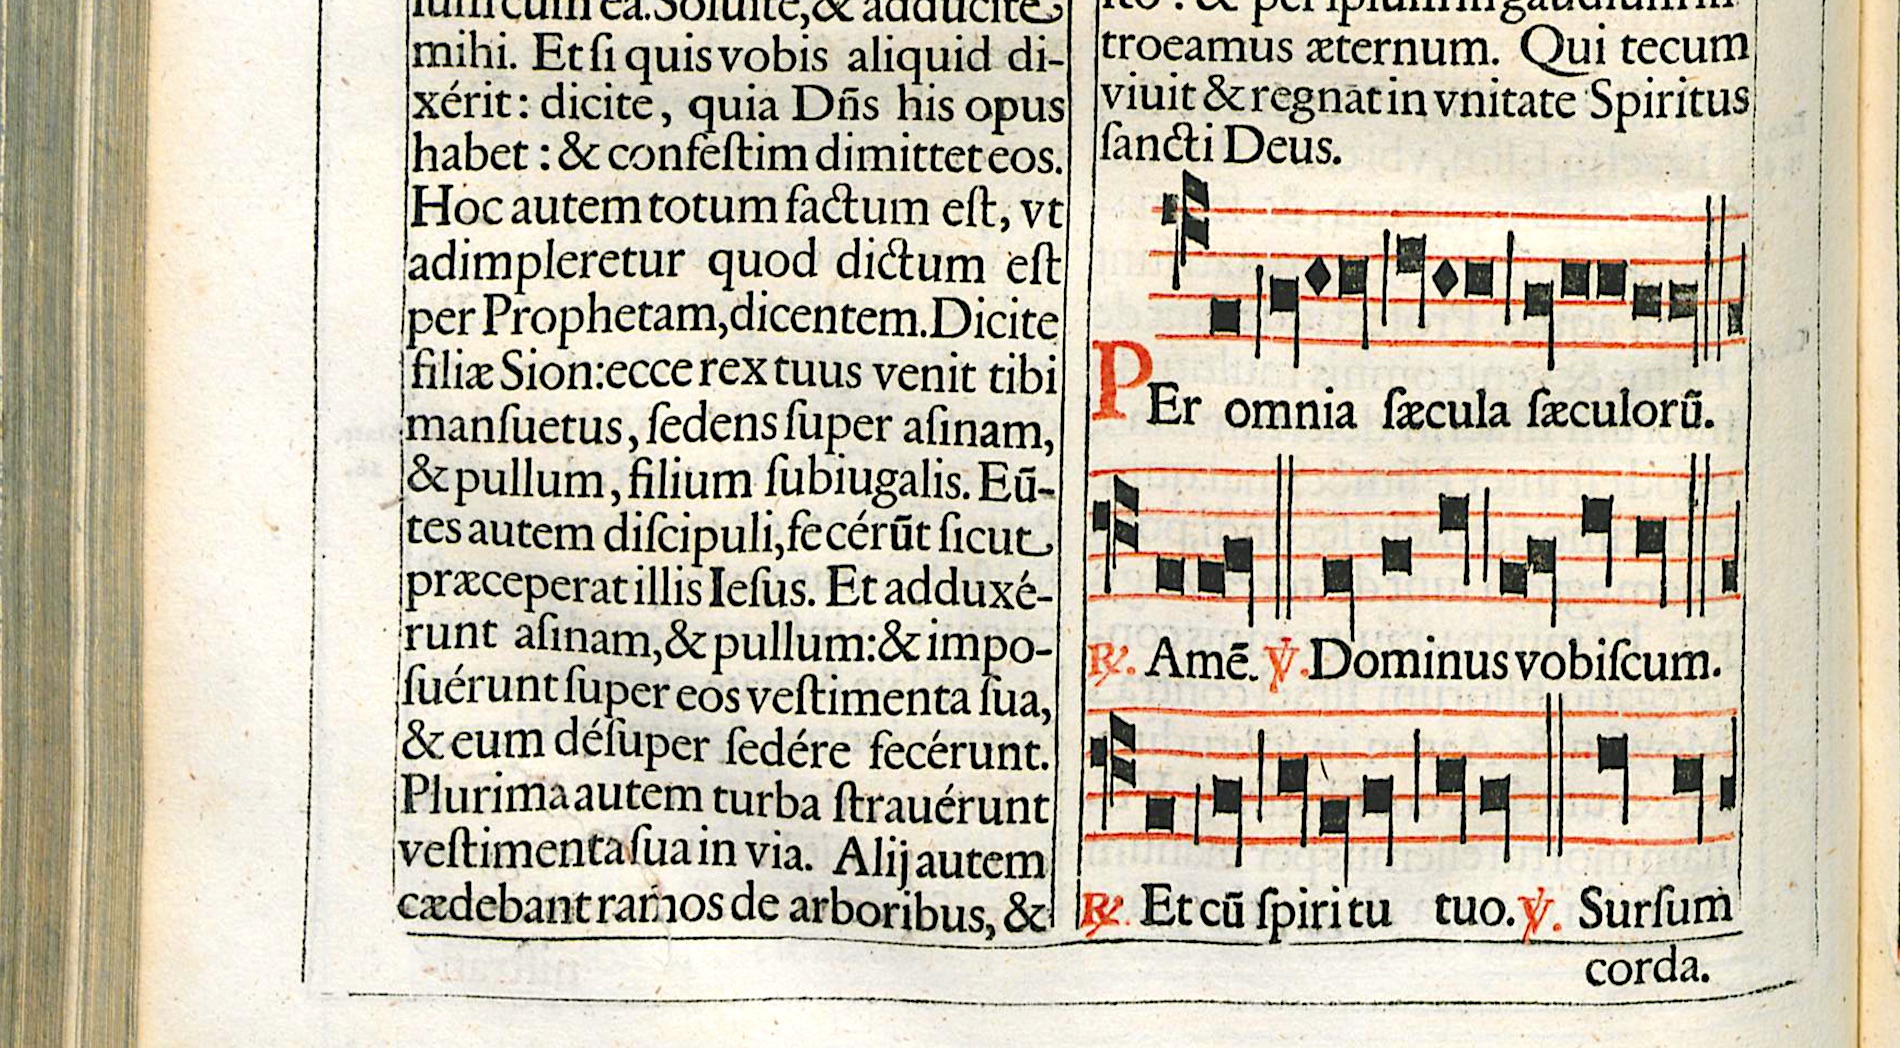 cum ea. Soluite, & adducite
mihi. Et ſi quis vobis aliquid di-
xérit: dicite, quia Dñs his opus
habet: & confeſtim dimittet eos.
Hoc autem totum factum eſt, vt
adimpleretur quod dictum eſt
per Prophetam, dicentem. Dicite
filiæ Sion: ecce rex tuus venit tibi
manſuetus, ſedens ſuper aſinam,
& pullum, filium ſubiugalis. Eũ-
tes autem diſcipuli, fecérũt ſicut
præceperat illis Ieſus. Et adduxé-
runt aſinam, & pullum: & impo-
ſuérunt ſuper eos veſtimenta ſua,
& eum déſuper ſedére fecérunt.
Plurima autem turba ſtrauérunt
veſtimenta ſua in via. Alij autem
cædebant ramos de arboribus, &
& per ipſum in gaudium in
troeamus æternum. Qui tecum
viuit & regnat in vnitate Spiritus
ſancti Deus.
PEr omnia ſæcula ſæculorũ.
℟. Amẽ. ℣. Dominus vobiſcum.
℟. Et cũ ſpiritu tuo. ℣. Surſum
corda.